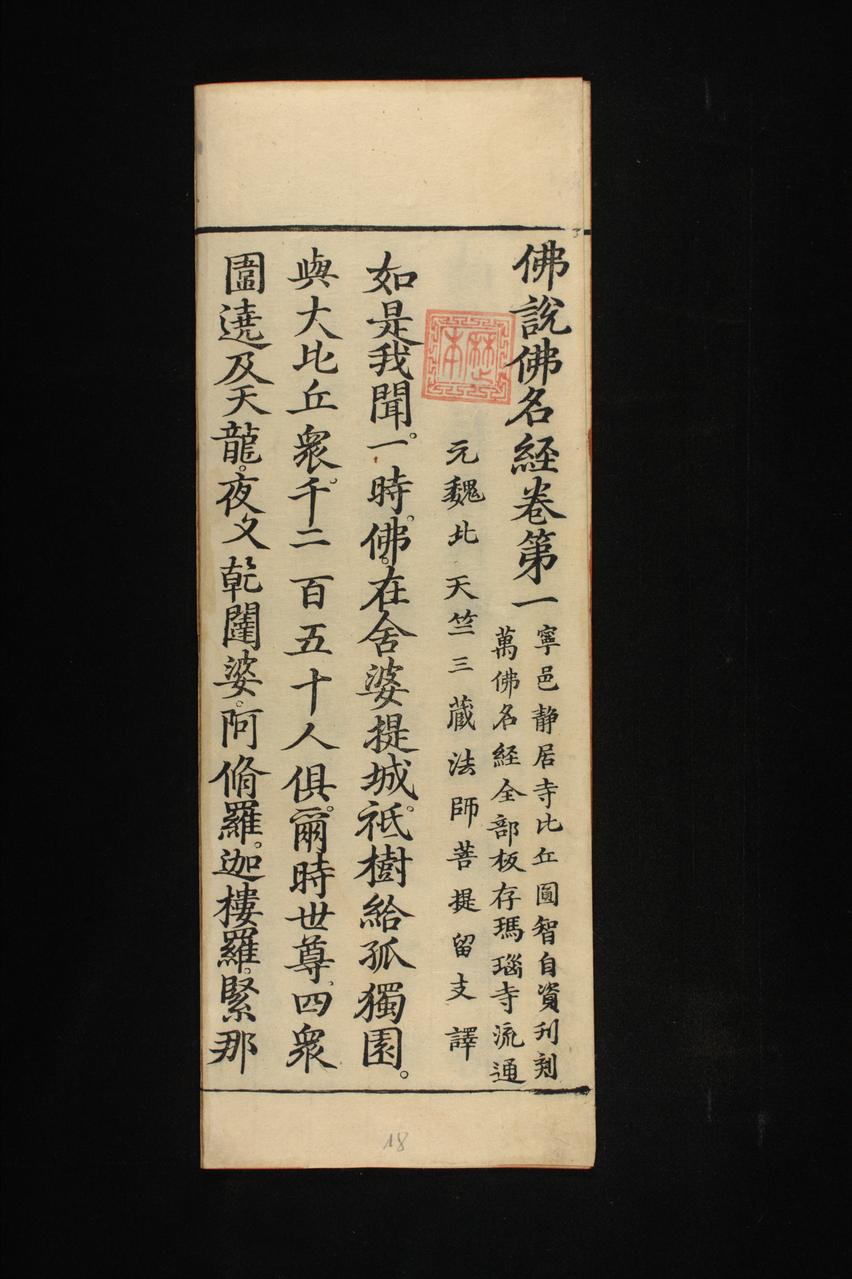 佛說佛名経卷第一
寧邑静居寺比丘圓智自資刋刻
萬佛名經全部板存瑪瑙寺流通
元魏北天竺三藏法師菩提留支譯
如是我聞。一時。佛。在舍婆提城。祇樹給孤獨園。
與大比丘衆。千二百五十人俱。爾時世尊、四衆
圍遶及天龍。夜叉乹闥婆。阿脩羅。迦樓羅。緊那
18